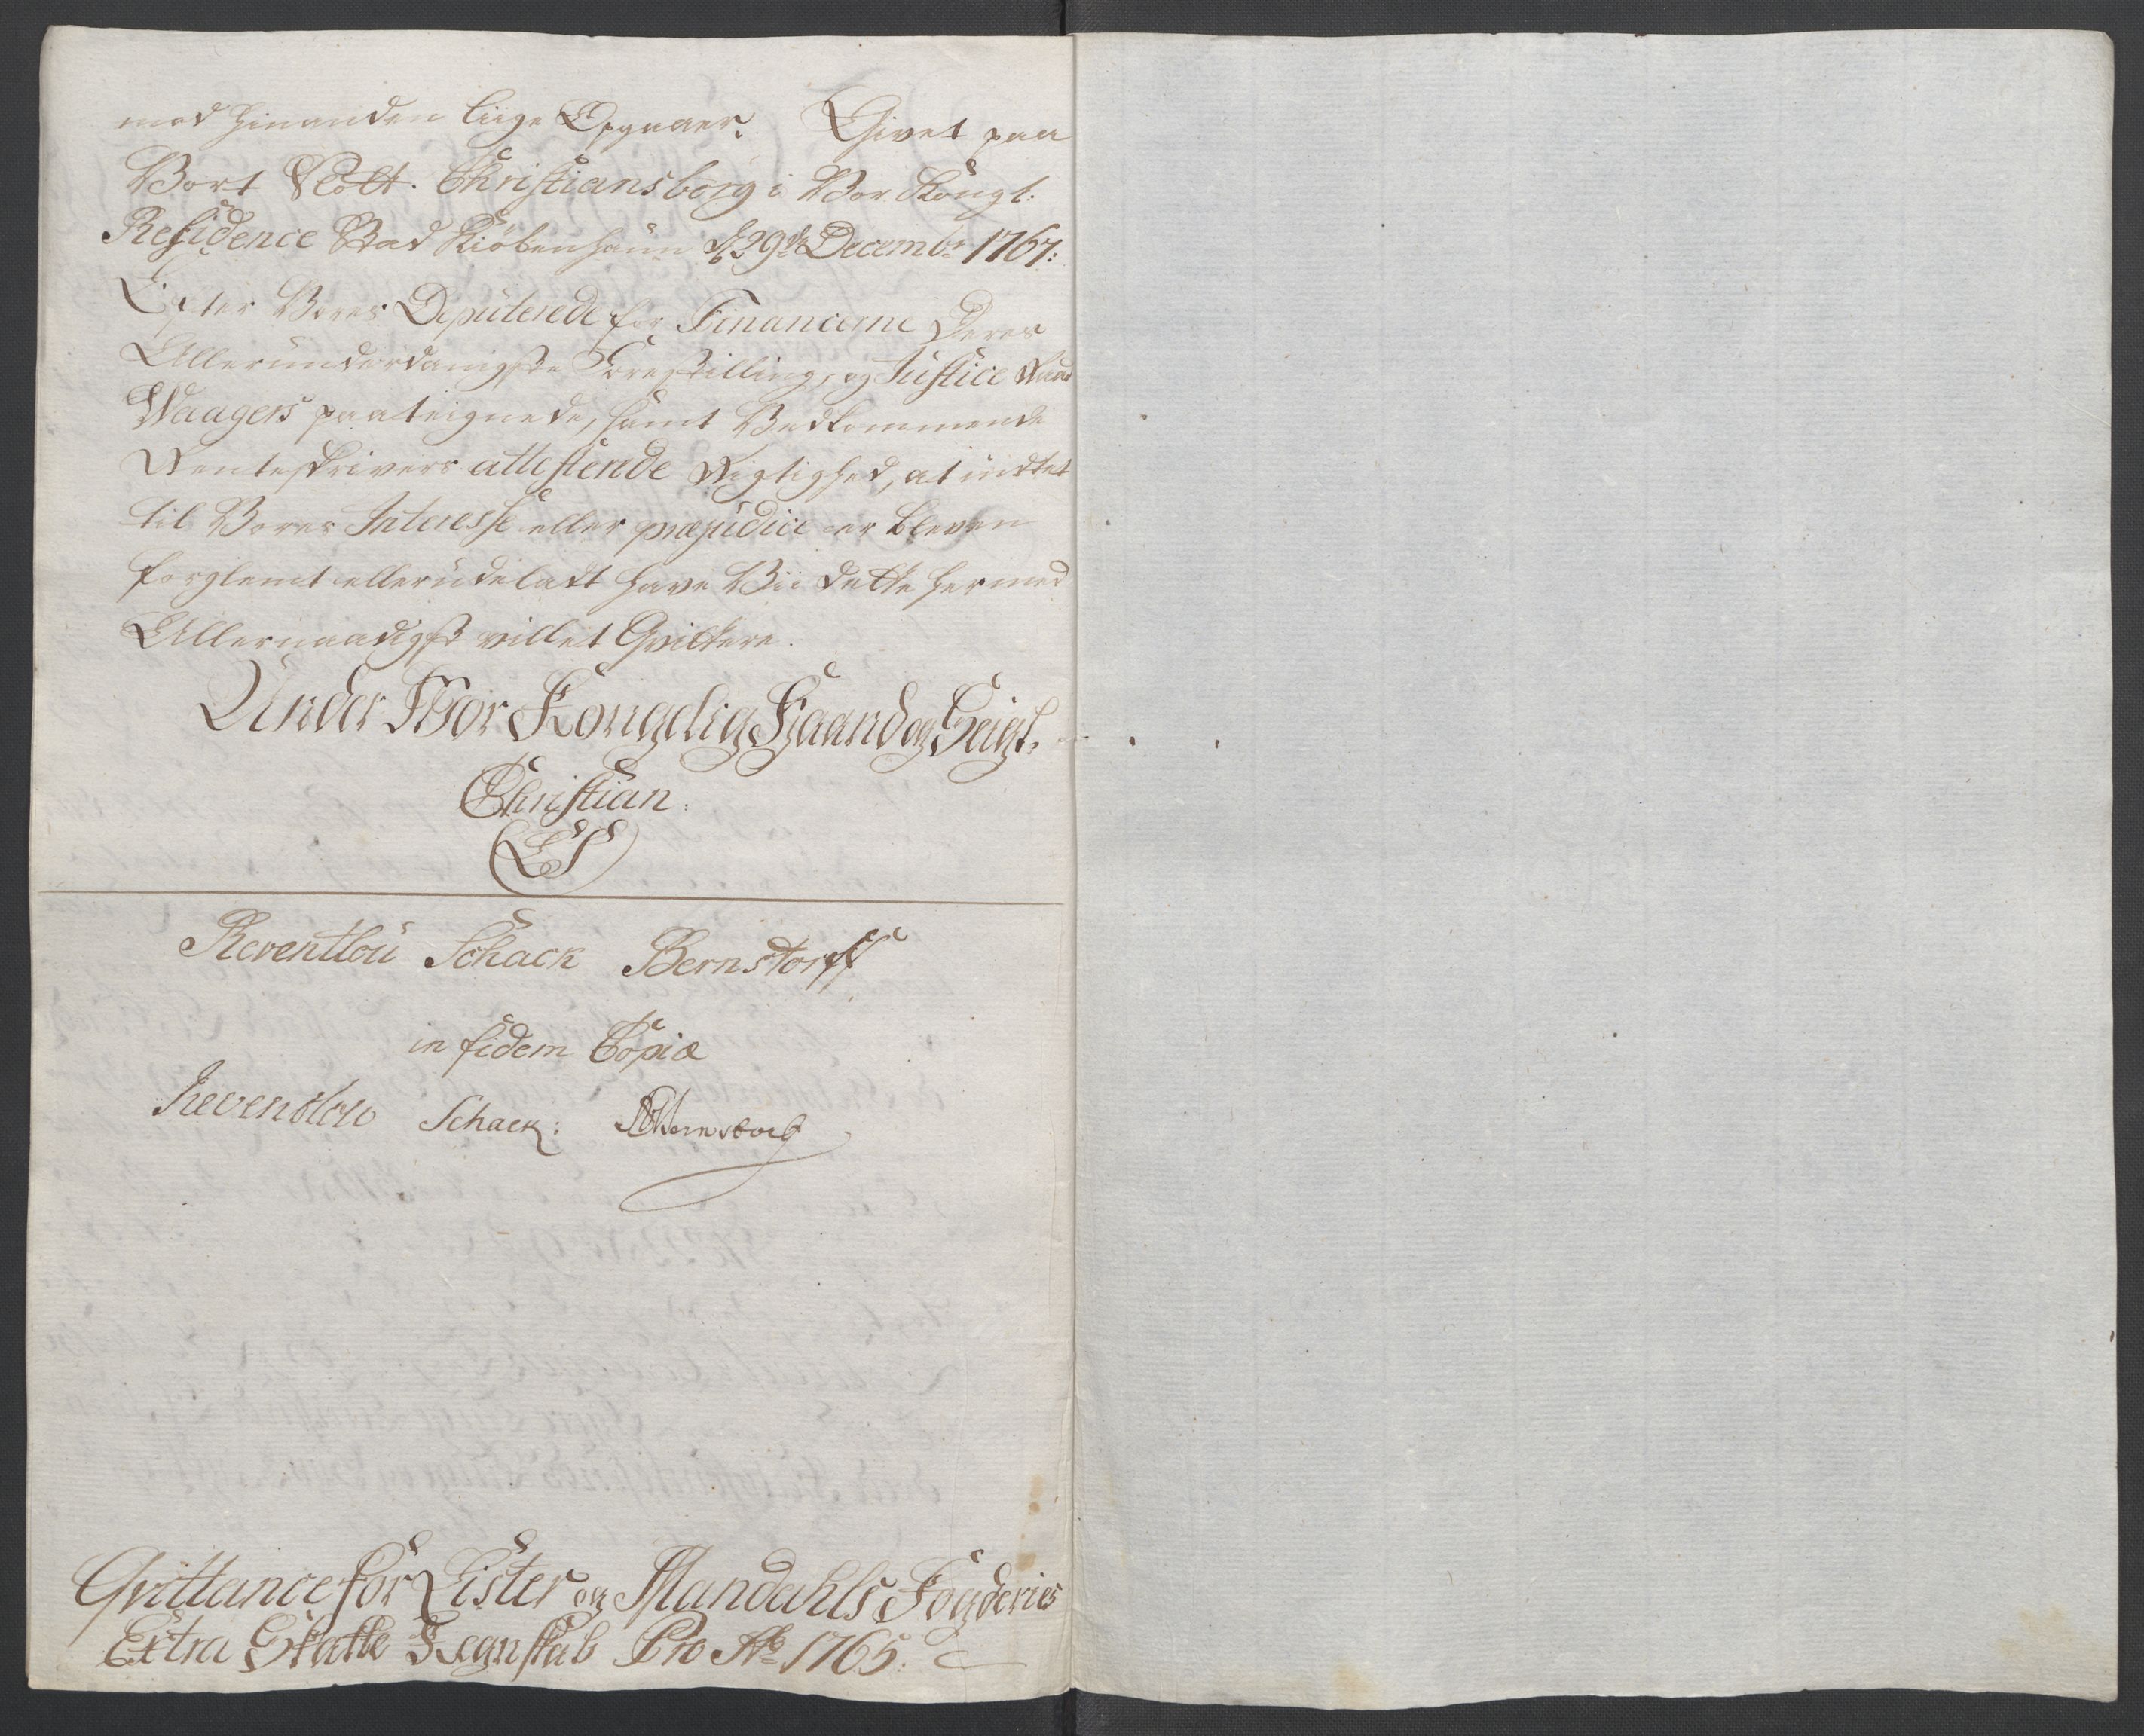 mod hinanden liige Opgaaer. Givet paa
Vort Slott Christiansborg i Vor Kongl:
Residence Stad Kiøbenhaun d 29de Decembr 1767:
Efter Vores Deputerede for Financerne Deres
Allerunderdanigste Forestilling, og Justice Raad
Waagers paateignede, samt Vedkommende
Renteskrivers attesterede Rigtighed, at indtet
til Vores Interesse eller præjudice er bleven
forglemt eller udeladt have Vii dette hermed
Allernaadigst villet Qvittere.
Under Vor Kongelig Haand og Seigl.
Christian.
LS
Reventlou Schack Bernstorff
in fidem Copiæ
Reventlow Schack: Bernstorff
Qvittance for Lister og Mandahls Fogderies
Extra Skatte Regnskab Pro Ao 1765.